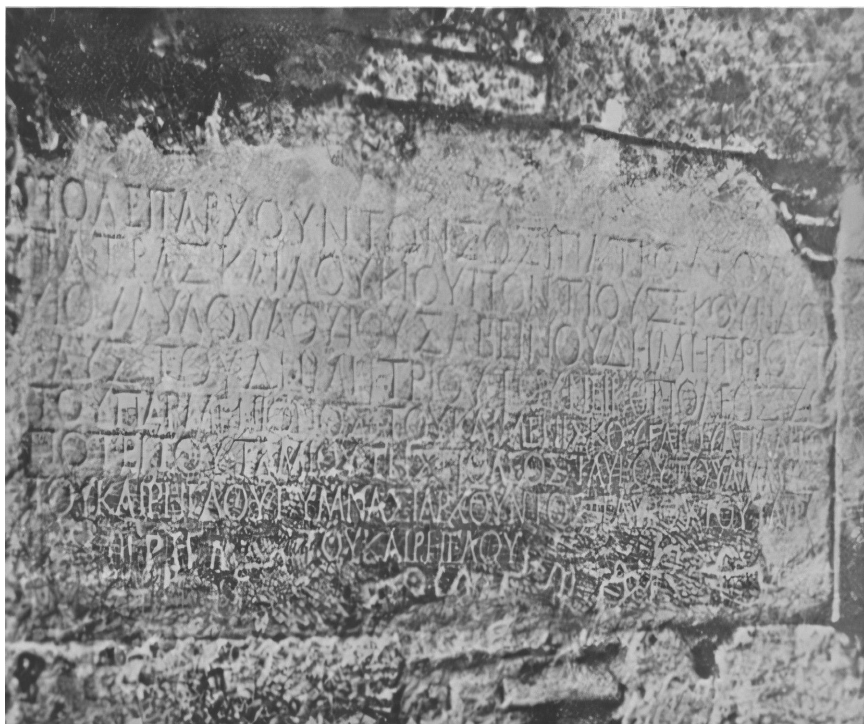 ΠΟΛΕΙΤΑΡΧΟΥΝΤΩΝ ΣΩΣΙΠΑΤΡΟΥ ΤΟΥ
ΠΑΤΡΑΣ ΚΑΙ ΛΟΥΚΙΟΥ ΠΟΝΤΙΟΥ ΣΕΚΟΥΝΔΟ
ΑΟΥΙΟΥ ΣΑΒΕΙΝΟΥ ΔΗΜΗΤΡΙΟΥ
ΑΥΣΤΟΥ ΔΗΜΗΤΡΙΟΥ ΤΟΥ ΝΙΚΟΠΟΛΕΩΣ Ζ
ΤΟΥ ΠΑΡΜΕΝΙΩΝΟΣ ΤΟΥ ΚΑΙ ΜΕΝΙΣΚΟΥ ΓΑΙΟΥ
ΠΟΤΕΙΤΟΥ ΤΑΜΙΟΥ ΤΗΣ ΠΟΛΕΩΣ ΤΑΥΡΟΥ ΤΟΥ ΑΜΜΙ
ΤΟΥ ΚΑΙ ΡΗΓΛΟΥ ΓΥΜΝΑΣΙΑΡΧΟΥΝΤΟΣ ΤΑΥΡΟΥ ΤΟΥ ΤΑΥΡ
ΤΟΥ ΚΑΙ ΡΗΓΛΟΥ